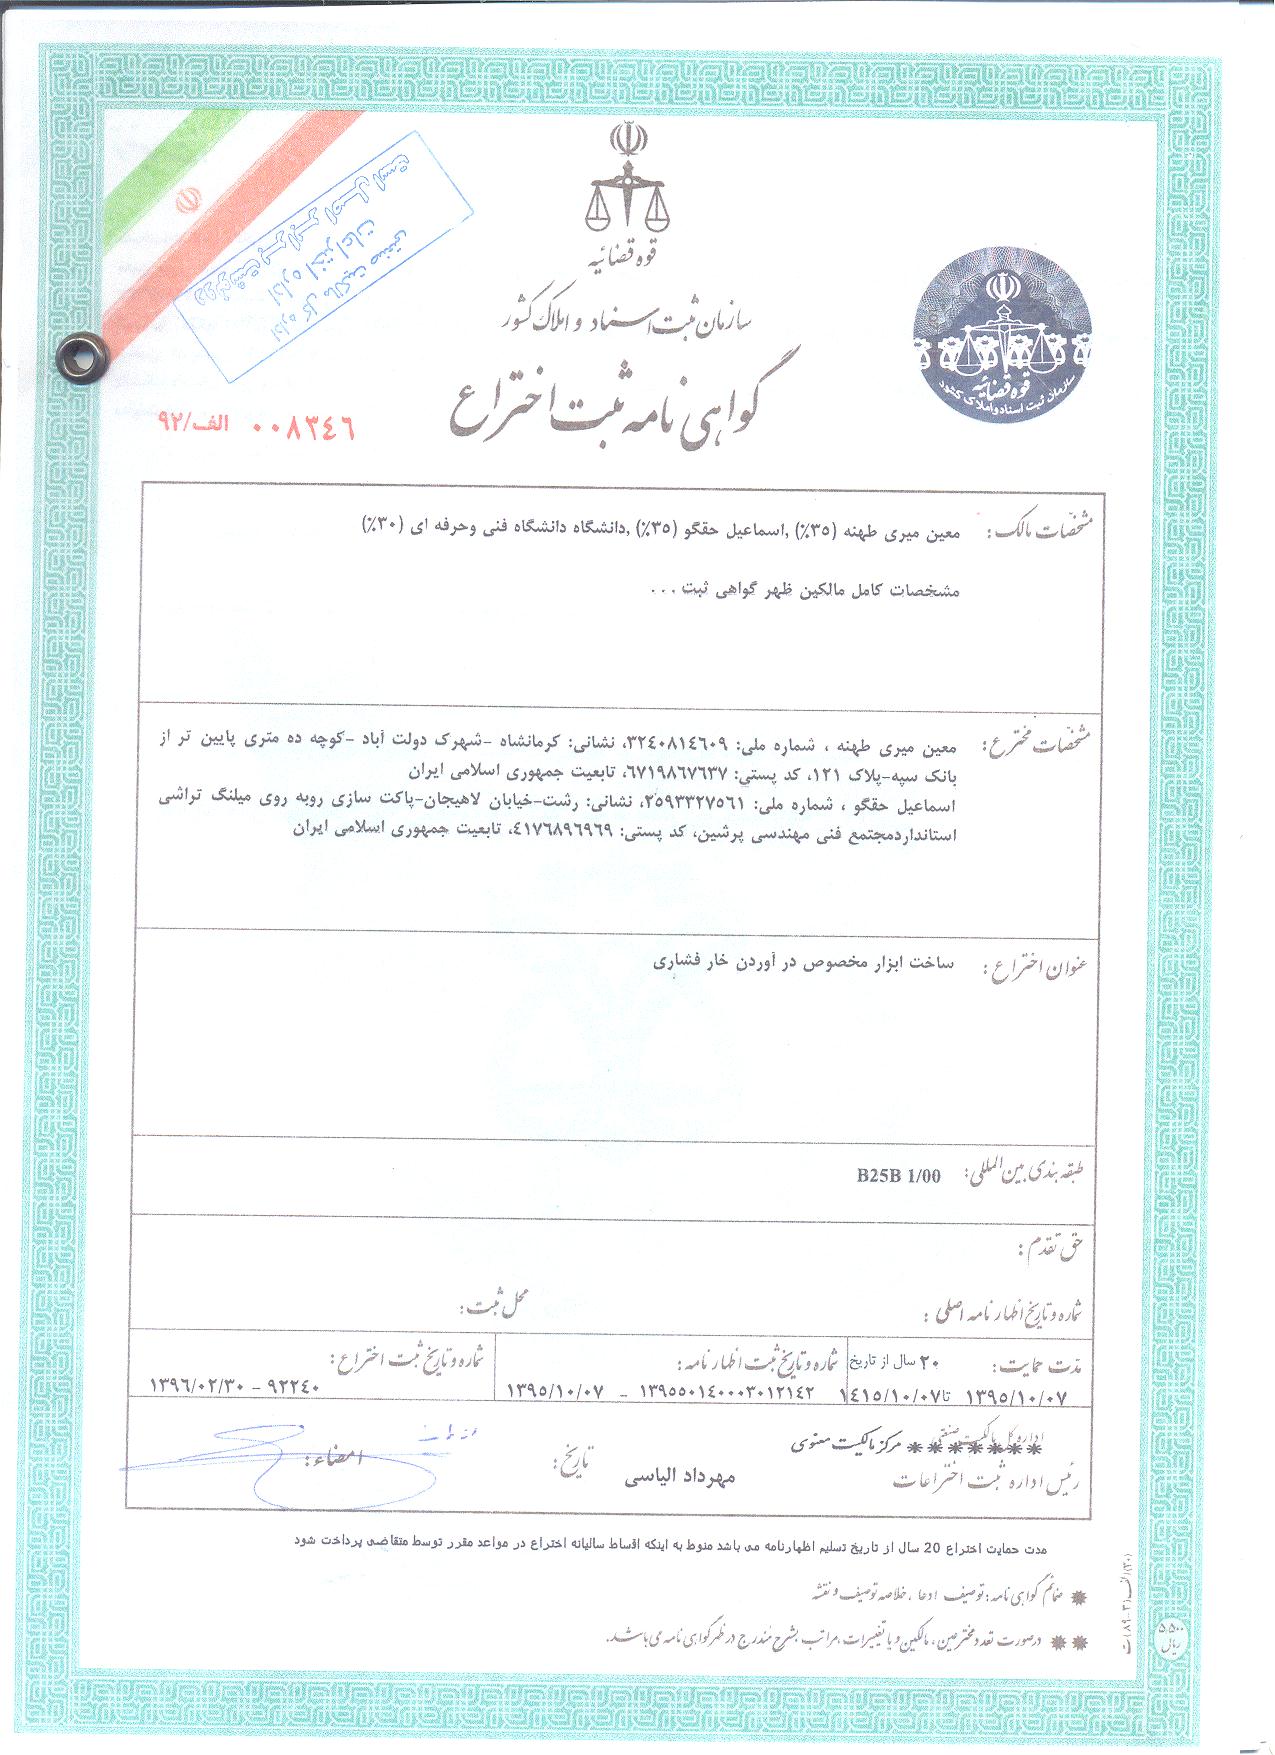 قوه قضائیه
سازمان ثبت اسناد و املاک کشور
گواهی نامه ثبت اختراع
رونوشت برابر اصل است
اداره اختراعات
اداره کل مالکیت صنعتی
قوه قضائیه
سازمان ثبت اسناد و املاک کشور
۰۰۸۳۴۶ الف/۹۲
مشخصات مالک: معین میری طهنه (۳۵٪) ,اسماعیل حقگو (۳۵٪) ,دانشگاه دانشگاه فنی وحرفه ای (۳۰٪)
مشخصات کامل مالکین ظهر گواهی ثبت ...
مشخصات مخترع: معین میری طهنه ، شماره ملی: ۳۲۴۰۸۱۴۶۰۹، نشانی: کرمانشاه -شهرک دولت آباد -کوچه ده متری پایین تر از
بانک سپه-پلاک ۱۲۱، کد پستی: ۶۷۱۹۸۶۷۶۳۷، تابعیت جمهوری اسلامی ایران
اسماعیل حقگو ، شماره ملی: ۲۵۹۳۳۲۷۵۶۱، نشانی: رشت-خیابان لاهیجان-پاکت سازی روبه روی میلنگ تراشی
استانداردمجتمع فنی مهندسی پرشین، کد پستی: ۴۱۷۶۸۹۶۹۶۹، تابعیت جمهوری اسلامی ایران
عنوان اختراع: ساخت ابزار مخصوص در آوردن خار فشاری
طبقه بندی بین المللی: B25B 1/00
حق تقدم:
شماره و تاریخ اظهارنامه اصلی: محل ثبت:
مدت حمایت: ۲۰ سال از تاریخ شماره و تاریخ ثبت اظهارنامه: شماره و تاریخ ثبت اختراع:
۱۳۹۵/۱۰/۰۷ تا۱۴۱۵/۱۰/۰۷ ۱۳۹۵۵۰۱۴۰۰۰۳۰۱۲۱۴۲ - ۱۳۹۵/۱۰/۰۷ ۹۲۲۴۰ - ۱۳۹۶/۰۲/۳۰
اداره کل مالکیت صنعتی ******* مرکز مالکیت معنوی
رئیس اداره ثبت اختراعات مهرداد الیاسی تاریخ: امضاء:
مدت حمایت اختراع 20 سال از تاریخ تسلیم اظهارنامه می باشد منوط به اینکه اقساط سالیانه اختراع در مواعد مقرر توسط متقاضی پرداخت شود
* ضمائم گواهی نامه: توصیف، ادعا ، خلاصه توصیف و نقشه
** درصورت تعدد مخترعین، مالکین و یا تغییرات، مراتب بشرح مندرج در ظهر گواهی نامه می باشد.
ت (۸۹-۳) الف (۳۰)
۵,۵۰۰ ریال